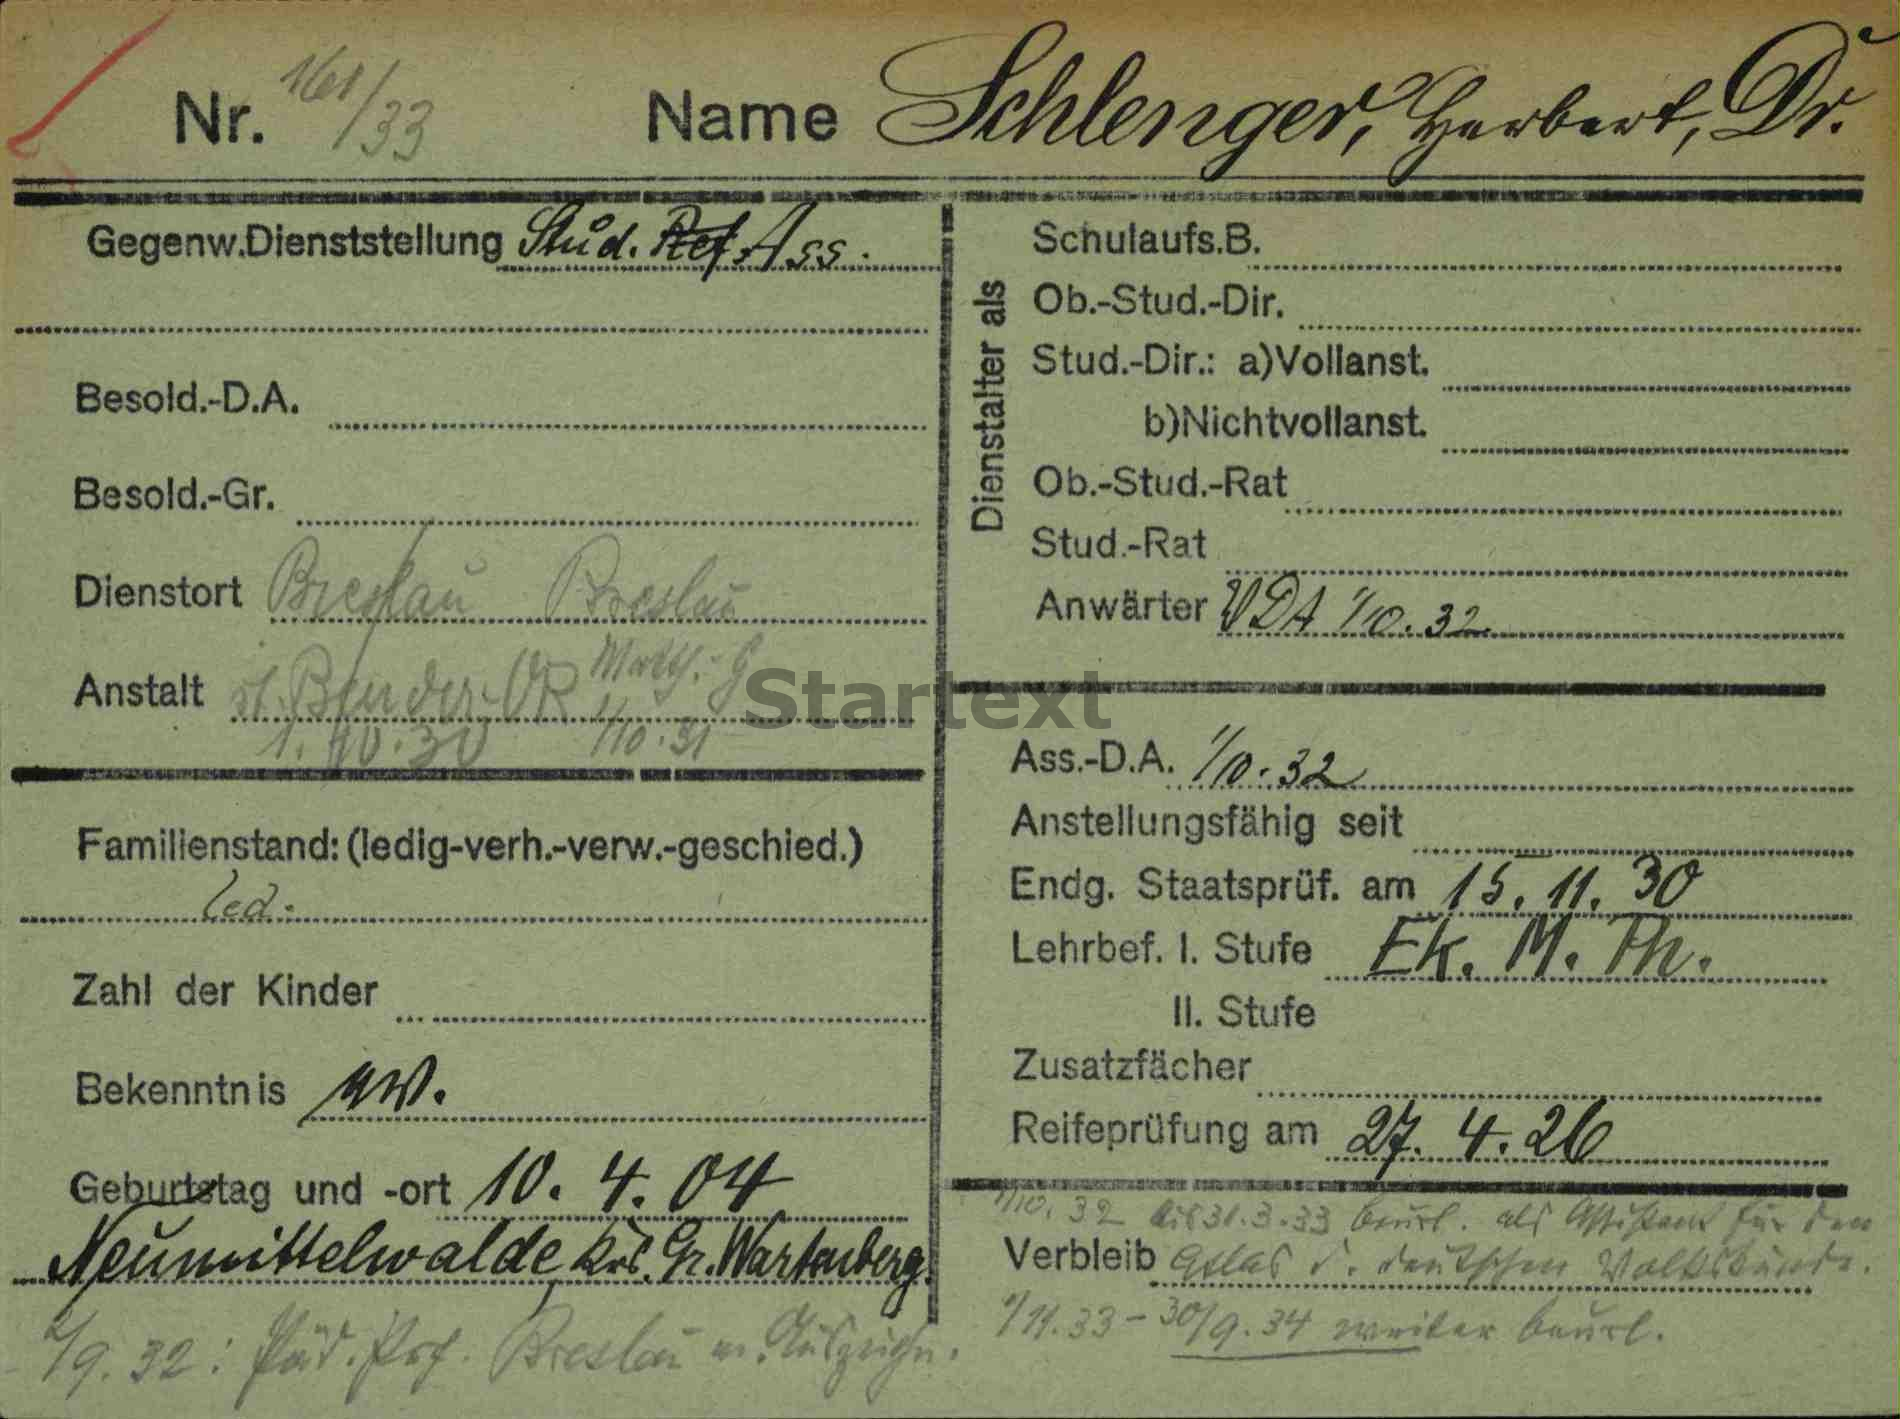 Nr. 161/33 Name Schlenger, Herbert, Dr.
Gegenw.Dienststellung Stud. Ref. Ass.
Besold.-D.A.
Besold.-Gr.
Dienstort Breslau Breslau
Anstalt Bender OR Matth.-G
1.10.30 1/10.31
Familienstand: (ledig-verh.-verw.-geschied.)
led.
Zahl der Kinder
Bekenntnis ev.
Geburtstag und -ort 10. 4. 04
Neumittelwalde, Krs. Gr. Wartenberg.
2/9.32: Päd. Prf. Breslau m. Auszeichn.
Dienstalter als
Schulaufs.B.
Ob.-Stud.-Dir.
Stud.-Dir.: a)Vollanst.
b)Nichtvollanst.
Ob.-Stud.-Rat
Stud.-Rat
Anwärter VDA 1/10.32
Startext
Ass.-D.A. 1/10.32
Anstellungsfähig seit
Endg. Staatsprüf. am 15. 11. 30
Lehrbef. I. Stufe Ek. M. Th.
II. Stufe
Zusatzfächer
Reifeprüfung am 27. 4. 26
1/10.32 bis 31.3.33 beurl. als Assistent für den
Verbleib Atlas d. deutschen Volkskunde.
1/11.33 - 30/9.34 weiter beurl.